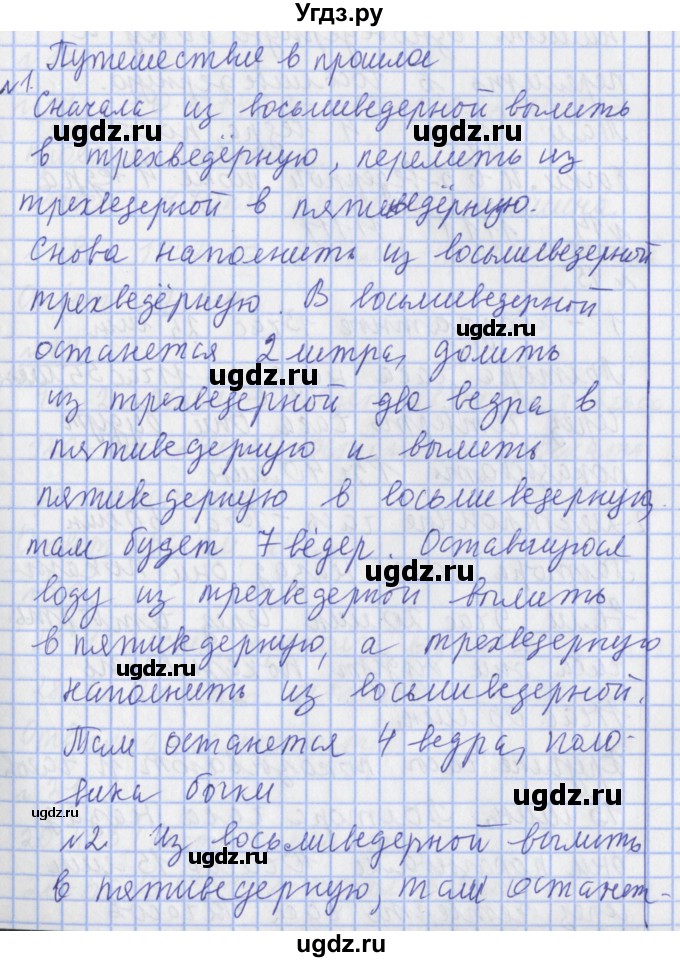 Угдз.ру
Путешествие в прошлое
№1.
Сначала из восьмиведерной вылить
ugdz.ru ugdz.ru
в трехведёрную, перелить из
трехведерной в пятиведёрную.
Снова наполнить из восьмиведерной
трехведёрную. В восьмиведерной
ugdz.ru
останется 2 литра, долить
ugdz.ru
из трехведерной два ведра в
пятиведерную и вылить
пятиведерную в восьмиведерную,
там будет 7 вёдер. Оставшуюся
ugdz.ru
воду из трехведерной вылить
в пятиведерную, а трехведерную
ugdz.ru
наполнить из восьмиведерной.
Там останется 4 ведра, поло-
вика бочки
ugdz.ru
ugdz.ru
№2 Из восьмиведерной вылить
ugdz.ru
в пятиведерную, там останет-
ugdz.ru